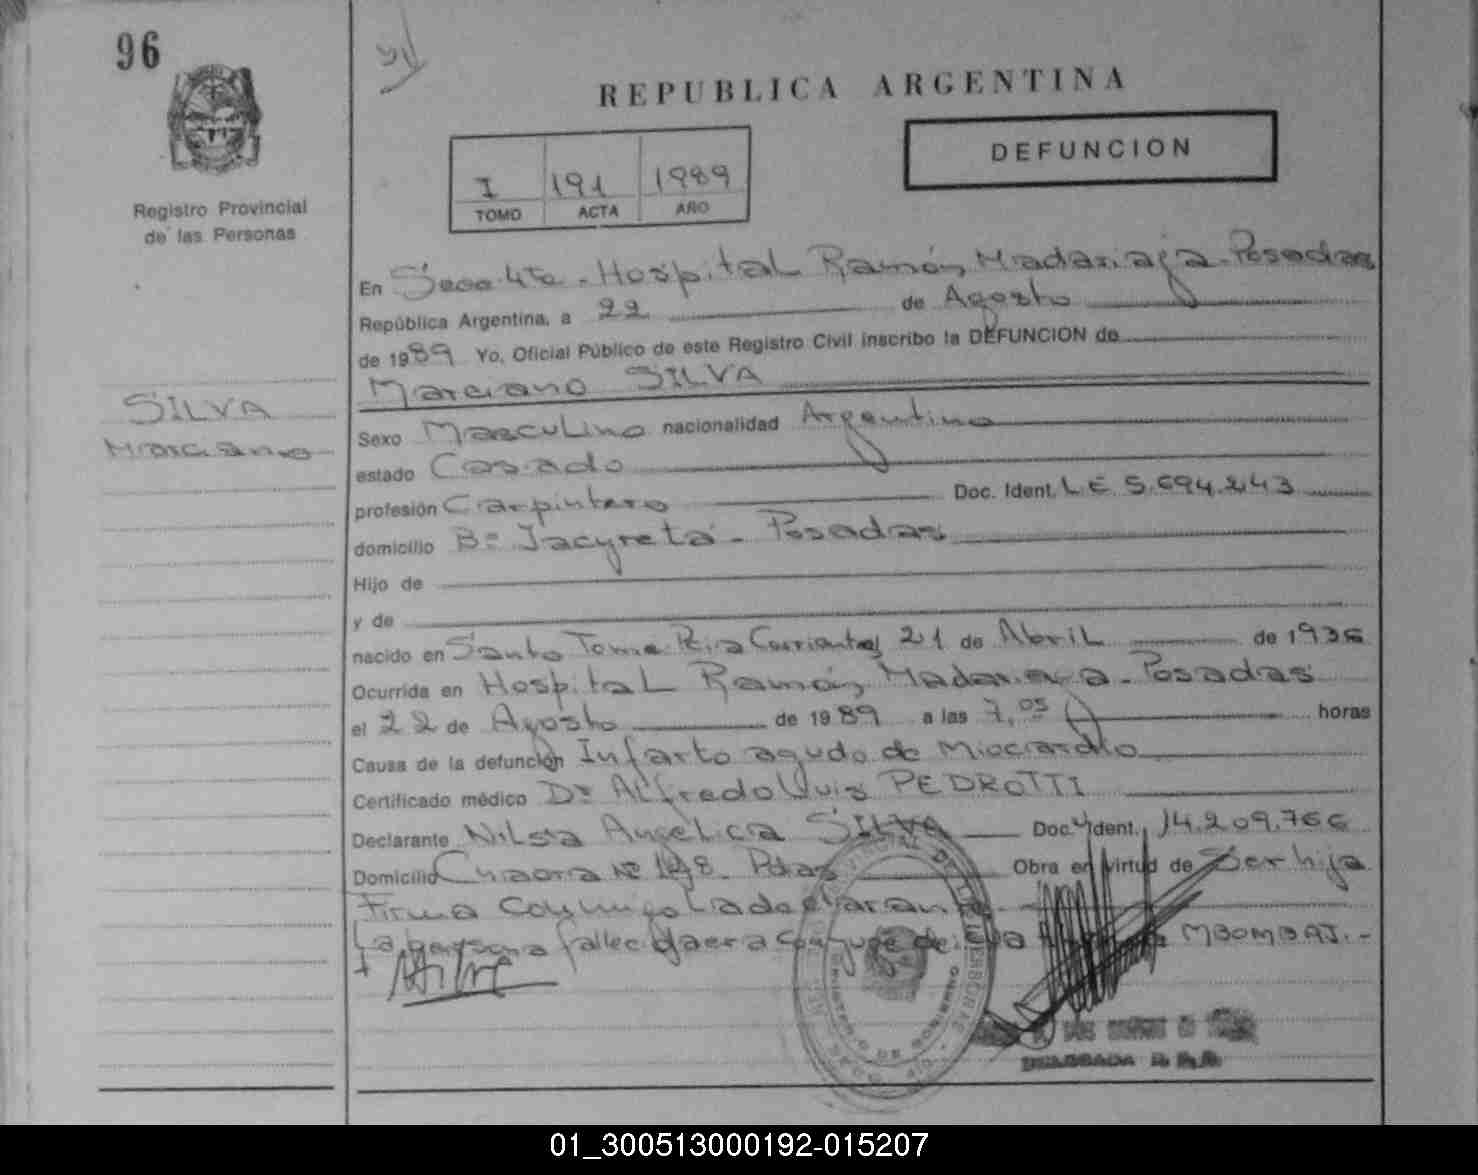 96
REPUBLICA ARGENTINA
I 191 1989
TOMO ACTA AÑO
DEFUNCION
Registro Provincial
de las Personas
SILVA
Marciano
En Secc. 4ta - Hospital Ramón Madariaga - Posadas
República Argentina, a 22 de Agosto
de 1989 Yo, Oficial Público de este Registro Civil inscribo la DEFUNCION de
Marciano SILVA
Sexo Masculino nacionalidad Argentino
estado Casado
profesión Carpintero Doc. Ident. L E 5.694.243
domicilio Bº Jacyretá - Posadas
Hijo de
y de
nacido en Santo Tome Pcia Corrientes 21 de Abril de 1936
Ocurrida en Hospital Ramón Madariaga - Posadas
el 22 de Agosto de 1989 a las 7,05 horas
Causa de la defunción Infarto agudo de Miocardio
Certificado médico Dr Alfredo Luis PEDROTTI
Declarante Nilsa Angelica SILVA Doc. Ident. 14.209.766
Domicilio Nº Pdas Obra en virtud de Ser hija
Firma conmigo La declarante
La persona fallecida era conyuge de MBOMBAJ.-
DELEGADA
01_300513000192-015207